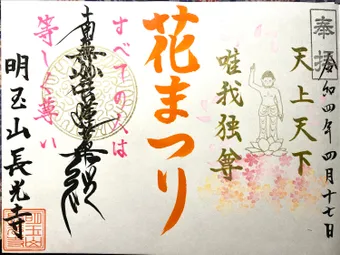 奉拝
令和四年四月十七日
天上天下
唯我独尊
花まつり
すべての人は
等しく尊い
南無妙法蓮華経
明玉山長光寺